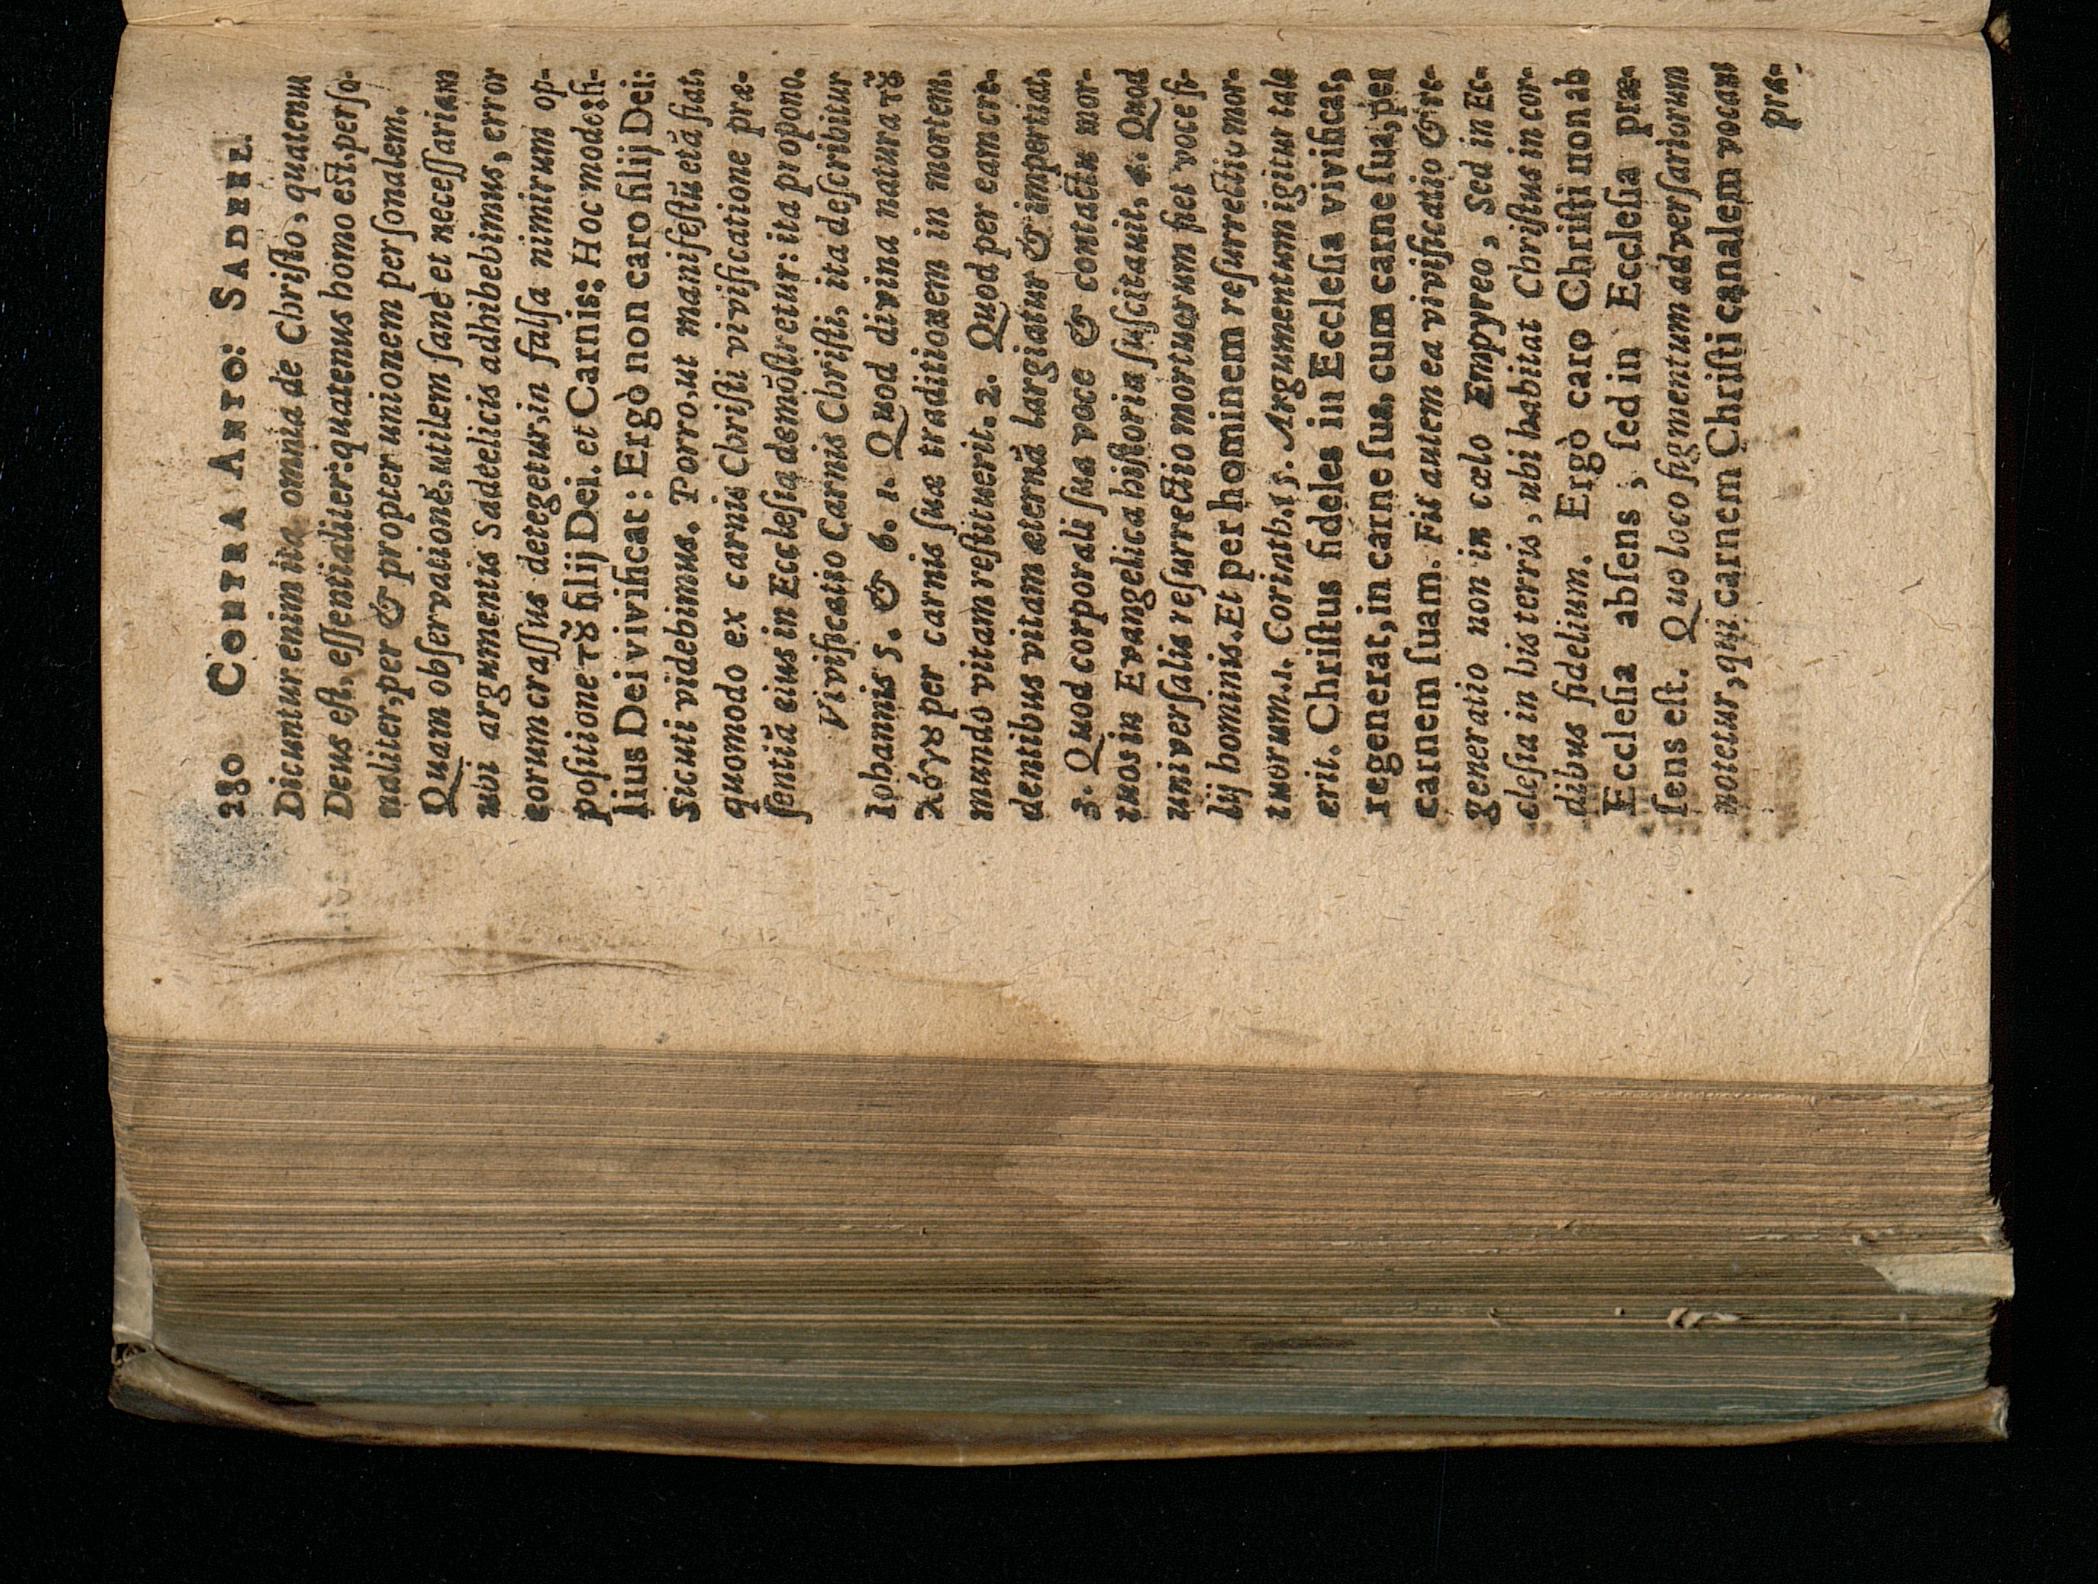 280 CONTRA ANTO: SADEEL.
Dicuntur enim ita omnia de Chriſto, quatenus
Deus eſt, eſſentialiter: quatenus homo eſt, perſo-
naliter, per & propter unionem perſonalem.
Quam obſervationē, utilem ſanè et neceſſariam
ubi argumentis Sadeelicis adhibebimus, error
eorum craſſus detegetur, in falſa nimirum op-
poſitione τȣ̃ filij Dei. et Carnis; Hoc modo: fi-
lius Dei vivificat: Ergò non caro filij Dei:
Sicuti videbimus. Porro, ut manifeſtū etiā fiat,
quomodo ex carnis Chriſti vivificatione præ-
ſentiā eius in Eccleſia demōſtretur: ita propono.
Vivificatio Carnis Chriſti, ita deſcribitur
Iohannis 5. & 6. 1. Quod divina natura τȣ̃
λόγȣ per carnis ſuæ traditionem in mortem,
mundo vitam reſtituerit. 2. Quod per eam cre-
dentibus vitam æternā largiatur & impertiat.
3. Quod corporali ſua voce & contactu mor-
tuos in Evangelica hiſtoria ſuſcitauit. 4. Quod
univerſalis reſurrectio mortuorum fiet voce fi-
lij hominis. Et per hominem reſurrectio mor-
tuorum. 1. Corinth. 15. Argumentum igitur tale
erit. Chriſtus fideles in Eccleſia vivificat,
regenerat, in carne ſua, cum carne ſua, per
carnem ſuam. Fit autem ea vivificatio & re-
generatio non in cælo Empyreo, Sed in Ec-
cleſia in his terris, ubi habitat Chriſtus in cor-
dibus fidelium. Ergò caro Chriſti non ab
Eccleſia abſens; ſed in Eccleſia præ-
ſens eſt. Quo loco figmentum adverſariorum
notetur, qui carnem Chriſti canalem vocant
præ-